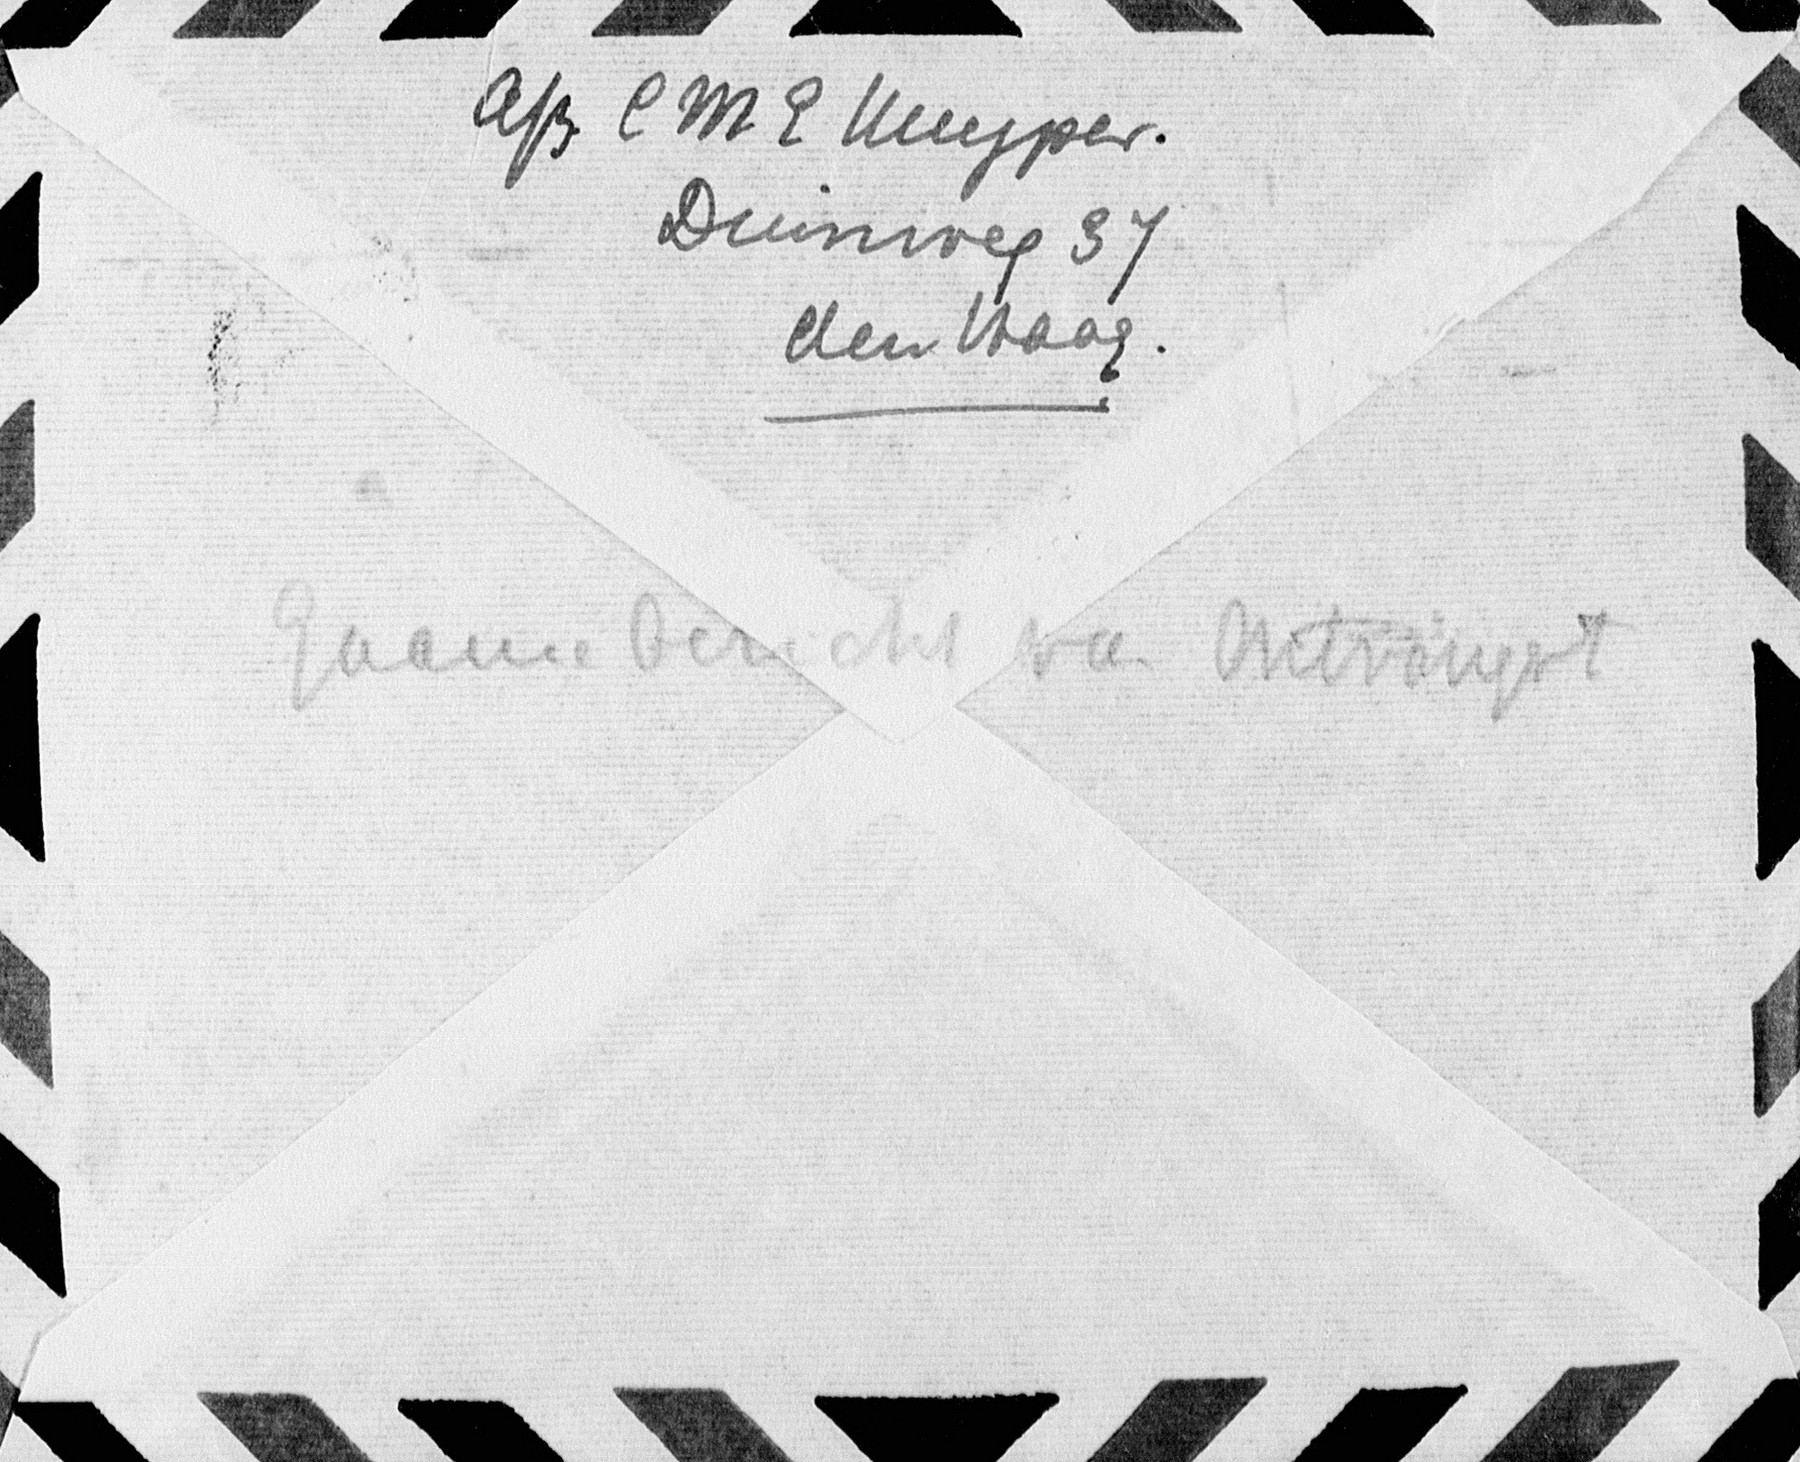 Afz. C M E Kuyper.
Duinweg 37
den Haag.
Gaarne bericht van Ontvangst